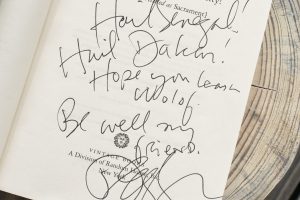 as Sacrament)
Hail Senegal!
Hail Dakar!
Hope you learn
Wolof.
Be well my
friend.
VINTAGE
A Division of Random
New York